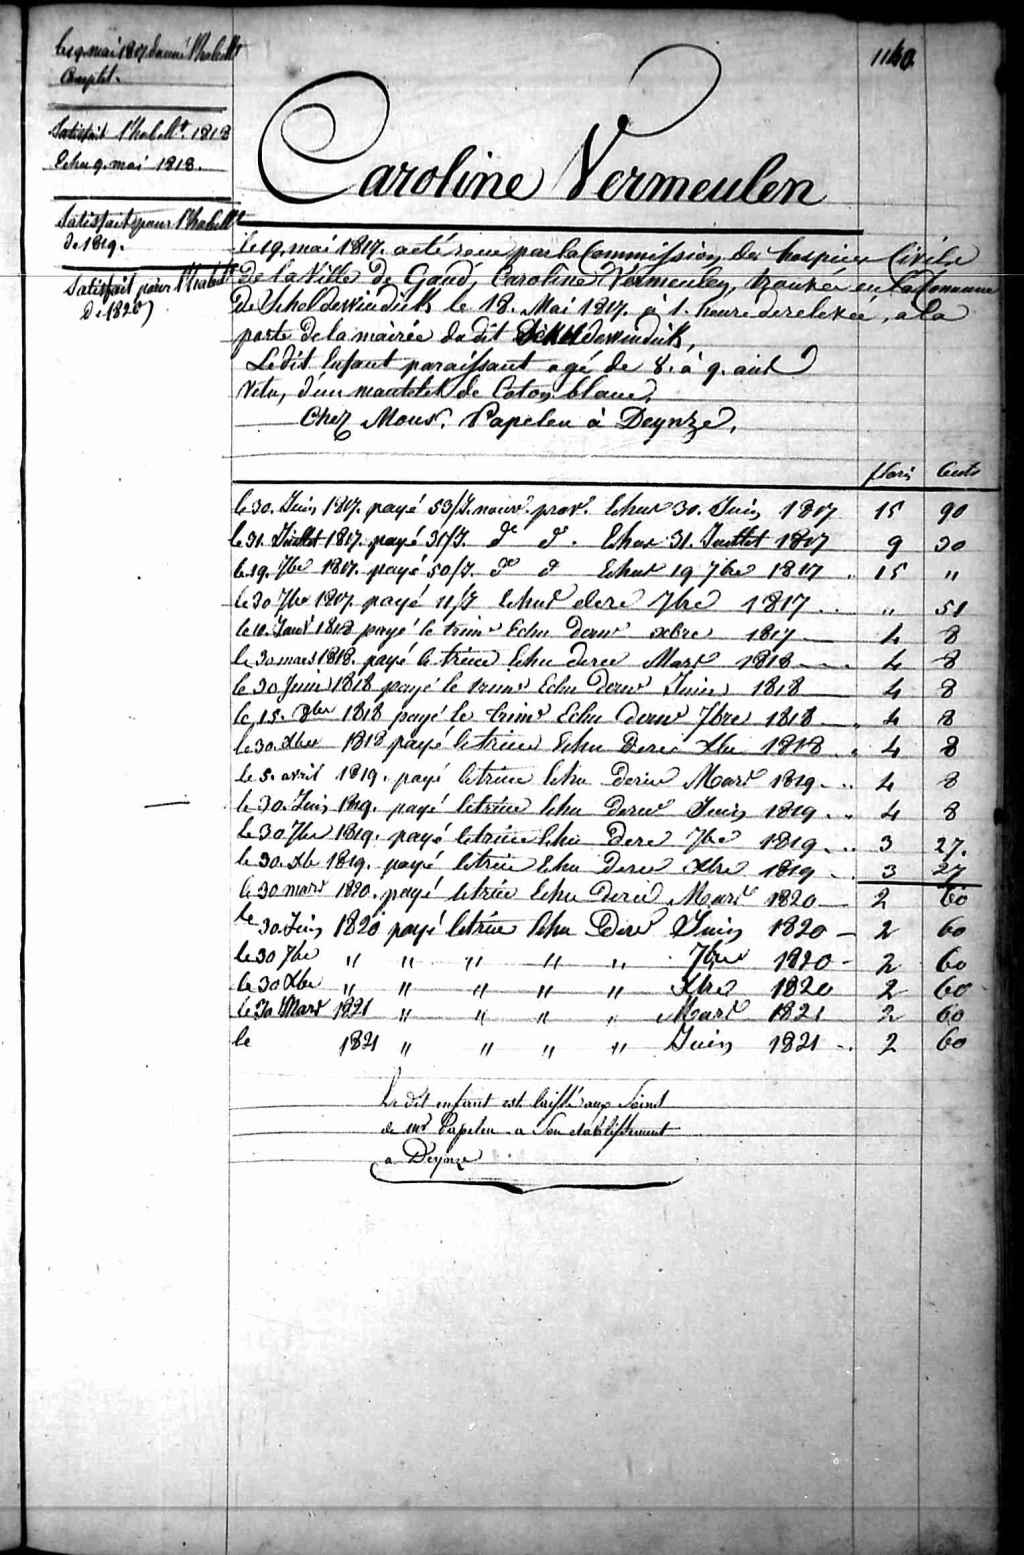 1140.
le 19. mai 1817 donné l'habillt
Complet.
Satisfait l'habillt. 1818
Echu 9. mai 1818.
Satisfait pour l'habillt
de 1819.
Satisfait pour l'habillt
de 1820
Caroline Vermeulen
Le 19. mai 1817. a été reçue par la Commission des hospices Civils
de la Ville de Gand, Caroline Vermeulen, trouvée en la Commune
de Scheldewindick le 18. Mai 1817. à 1. heure de relevée, a la
porte de la mairée du dit Scheldewindick,
Ledit Enfant paraissant agé de 8. à 9. ans
Vetu, d'un mantelet de Coton blanc,
Chez Monsr. Papeleu à Deynze,
florins Cents
le 30. Juin 1817. payé 53/J. nour. prov. Echus 30. Juin 1817 15 90
le 31. Juillet 1817. payé 31/J. do do. Echus 31. Juillet 1817 9 30
le 19. 7bre 1817. payé 50/J. do do Echus 19 7bre 1817 15 "
le 30 7bre 1817. payé 11/J Echus dere 7bre 1817 " 51
le 10. Janv 1818 payé le trimr Echu dernr xbre 1817 4 8
le 30 mars 1818. payé le trim Echu dere Mars 1818 4 8
le 30 Juin 1818 payé le trimr Echu dernr Juin 1818 4 8
le 15. 8bre 1818 payé le trimr Echu dernr 7bre 1818 4 8
le 30. Xbre 1818 payé le trim Echu dere Xbre 1818 4 8
le 5. avril 1819. payé le trim Echu dere Mars 1819 4 8
le 30. Juin 1819. payé le trim Echu dernr Juin 1819 4 8
le 30 7bre 1819. payé le trim Echu dere 7bre 1819 3 27.
le 30. Xbr 1819. payé le trim Echu dere Xbre 1819 3 27
le 30 mars 1820. payé le trim Echu dere Mars 1820 2 60
le 30 Juin 1820 payé le trim Echu dere Juin 1820 2 60
le 30 7bre " " " " " 7bre 1820 2 60
le 30 Xbre " " " " " Xbre 1820 2 60
le 30 Mars 1821 " " " " Mars 1821 2 60
le 1821 " " " " Juin 1821 2 60
Le dit enfant est laissé aux Soins
de mr Papeleu a Son etablissement
a Deynze